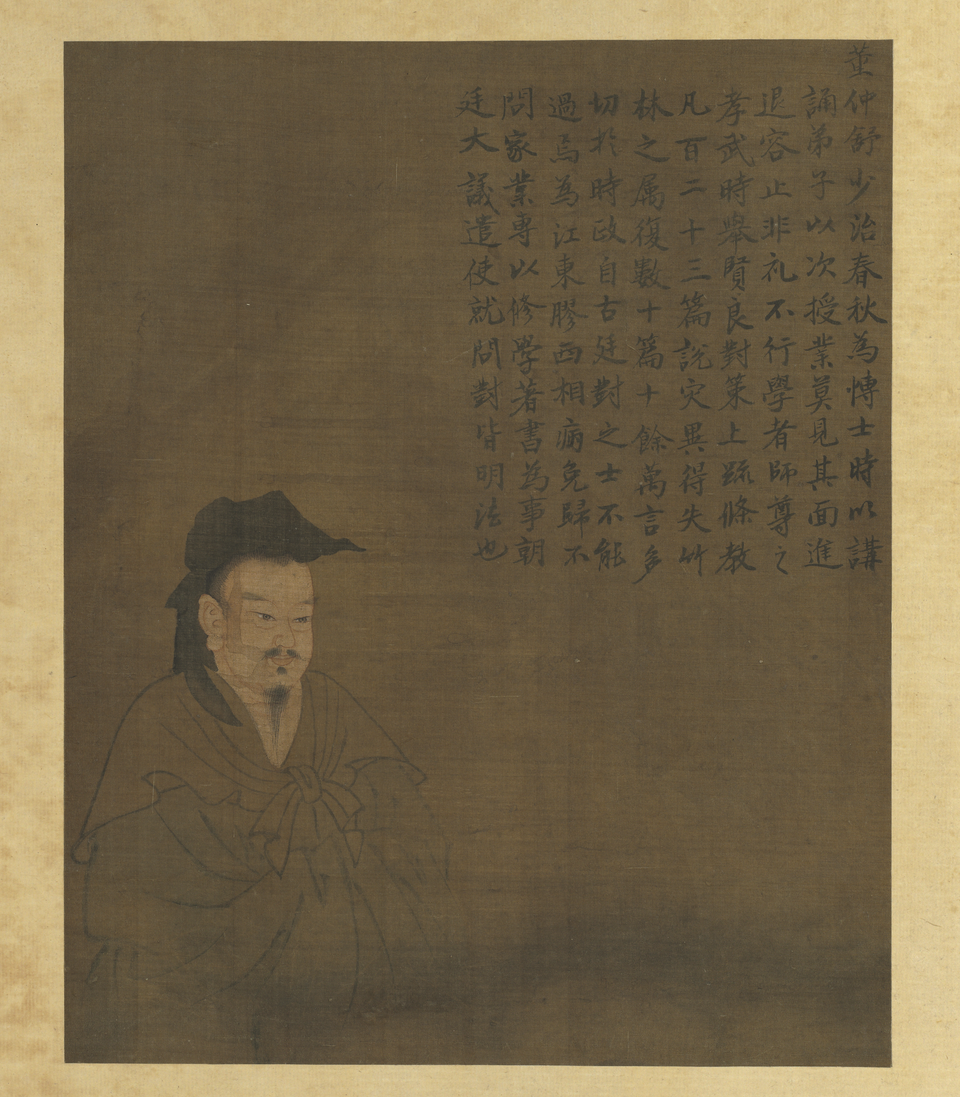 董仲舒少治春秋為愽士時以講
誦弟子以次授業莫見其面進
退容止非礼不行學者師尊之
孝武時舉賢良對策上疏條教
凡百二十三篇說灾異得失竹
林之属復數十篇十餘萬言多
切於時政自古廷對之士不能
過焉為江東膠西相病免歸不
問家業專以修學著書為事朝
廷大議遣使就問對皆明法也